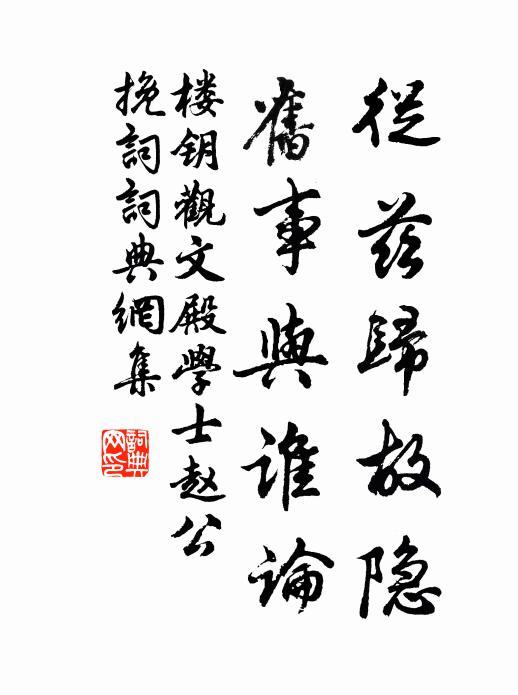 從茲歸故隐
舊事與誰論
楼钥觀文殿學士赵公
挽詞詞典網集
詞典
网印